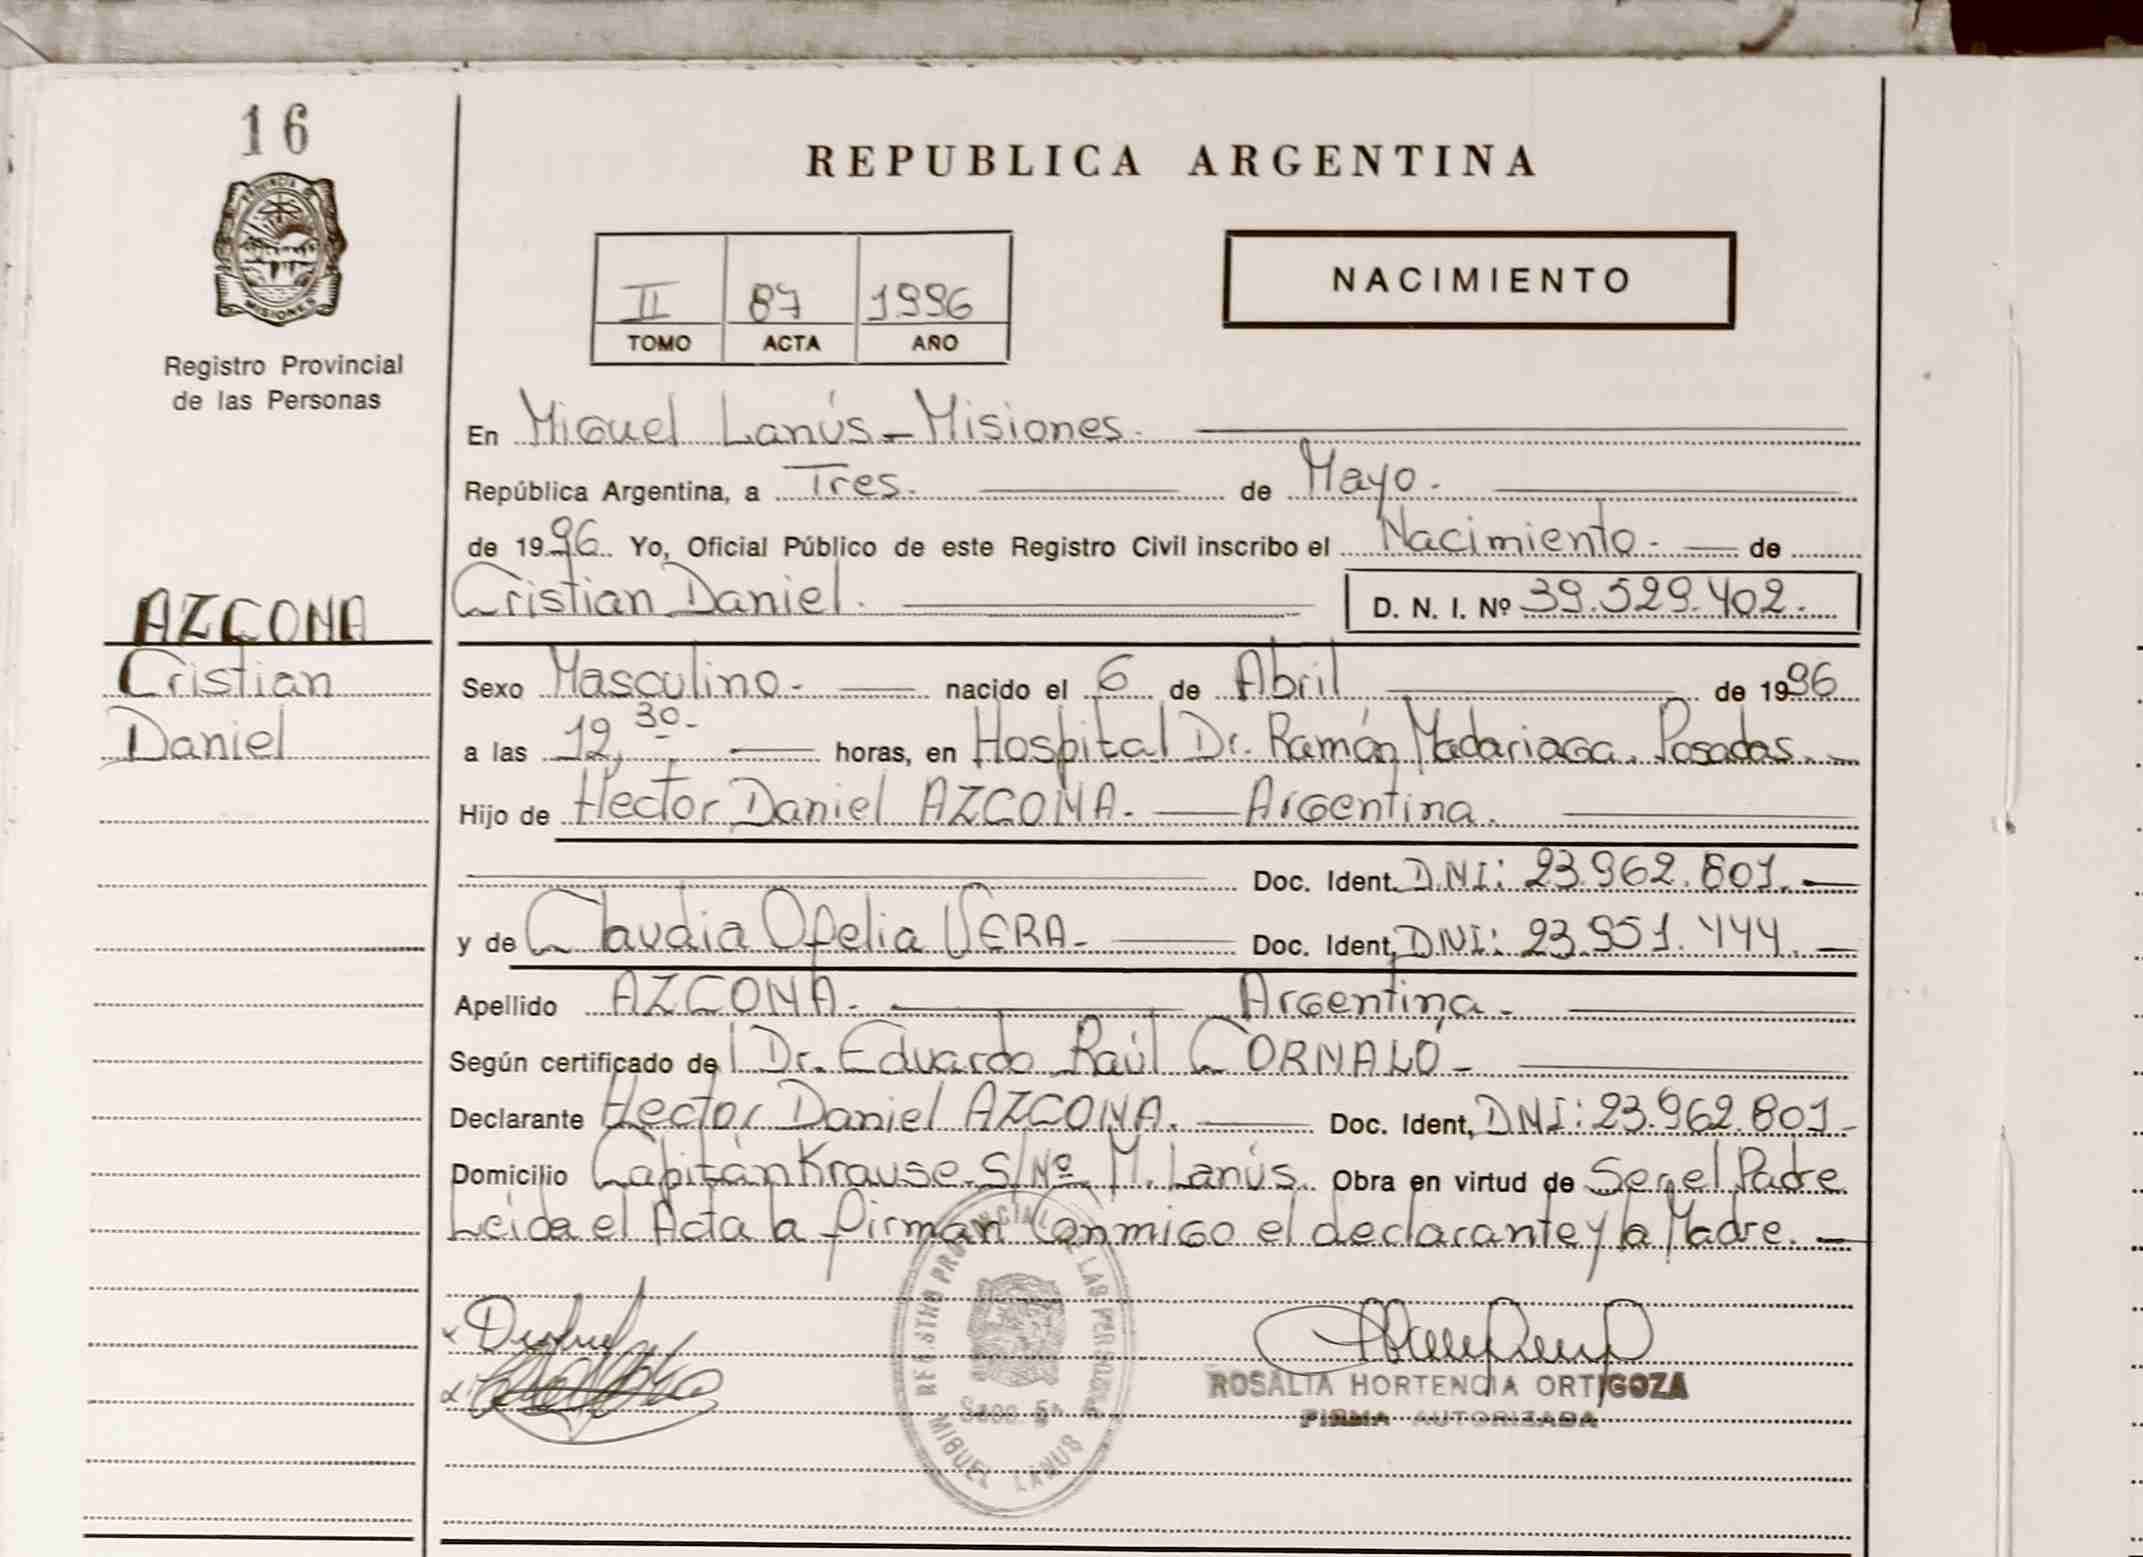 16
PROVINCIA DE
MISIONES
Registro Provincial
de las Personas
AZCONA
Cristian
Daniel
REPUBLICA ARGENTINA
II 87 1996
TOMO ACTA AÑO
NACIMIENTO
En Miguel Lanús - Misiones.
República Argentina, a Tres. de Mayo.
de 1996. Yo, Oficial Público de este Registro Civil inscribo el Nacimiento - de
Cristian Daniel. D. N. I. Nº 39.529.402.
Sexo Masculino - nacido el 6 de Abril de 1996
a las 12,30- horas, en Hospital Dr. Ramón Madariaga. Posadas. -
Hijo de Hector Daniel AZCONA. - Argentina.
Doc. Ident. DNI: 23.962.801. -
y de Claudia Ofelia VERA - Doc. Ident, DNI: 23.951.444. -
Apellido AZCONA. - Argentina -
Según certificado de Dr. Eduardo Raúl CORNALÓ -
Declarante Hector Daniel AZCONA. Doc. Ident, DNI: 23.962.801-
Domicilio Capitán Krause S/Nº M. Lanús. Obra en virtud de Ser el Padre
Leída el Acta la firman Conmigo el declarante y la Madre. -
REGISTRO PROVINCIAL DE LAS PERSONAS
MIGUEL LANUS
ROSALIA HORTENCIA ORTIGOZA
FIRMA AUTORIZADA